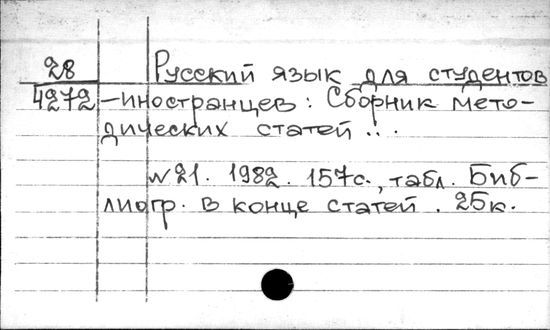 28 Русский язык для студентов
4272 -иностранцев: Сборник мето-
дических статей ...
№21. 1982. 157с., табл. Биб-
лиогр. в конце статей. 25к.